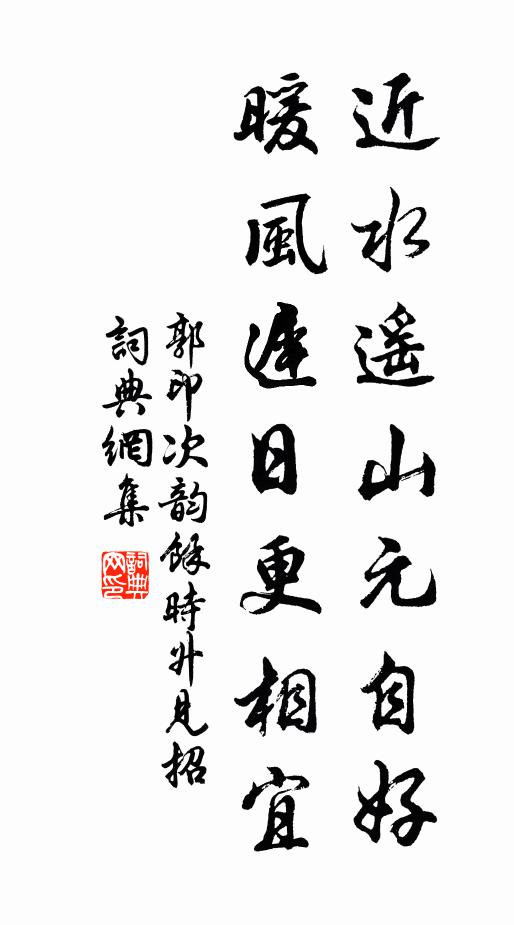 近水遥山元自好
暖風遲日更相宜
郭印次韵餘時升見招
詞典網集
詞典網印